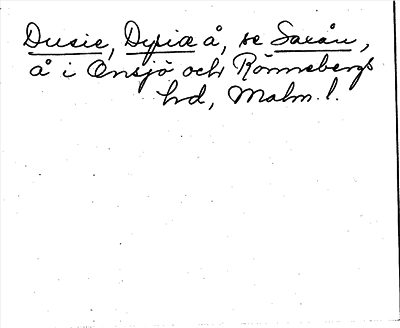 Dusie, Dysiæ å, se Saxån,
å i Onsjö och Rönnebergs
hd, Malm. l.